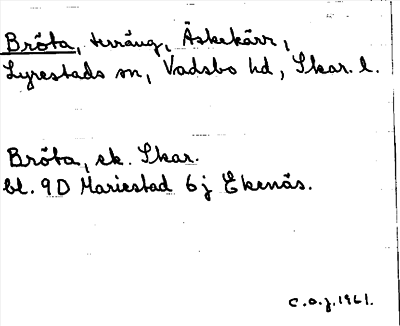 Bråta, terräng, Äskekärr,
Lyrestads sn, Vadsbo hd, Skar. l.
Bråta, ek. Skar.
bl. 9D Mariestad 6j Ekenäs.
C.O.J. 1961.